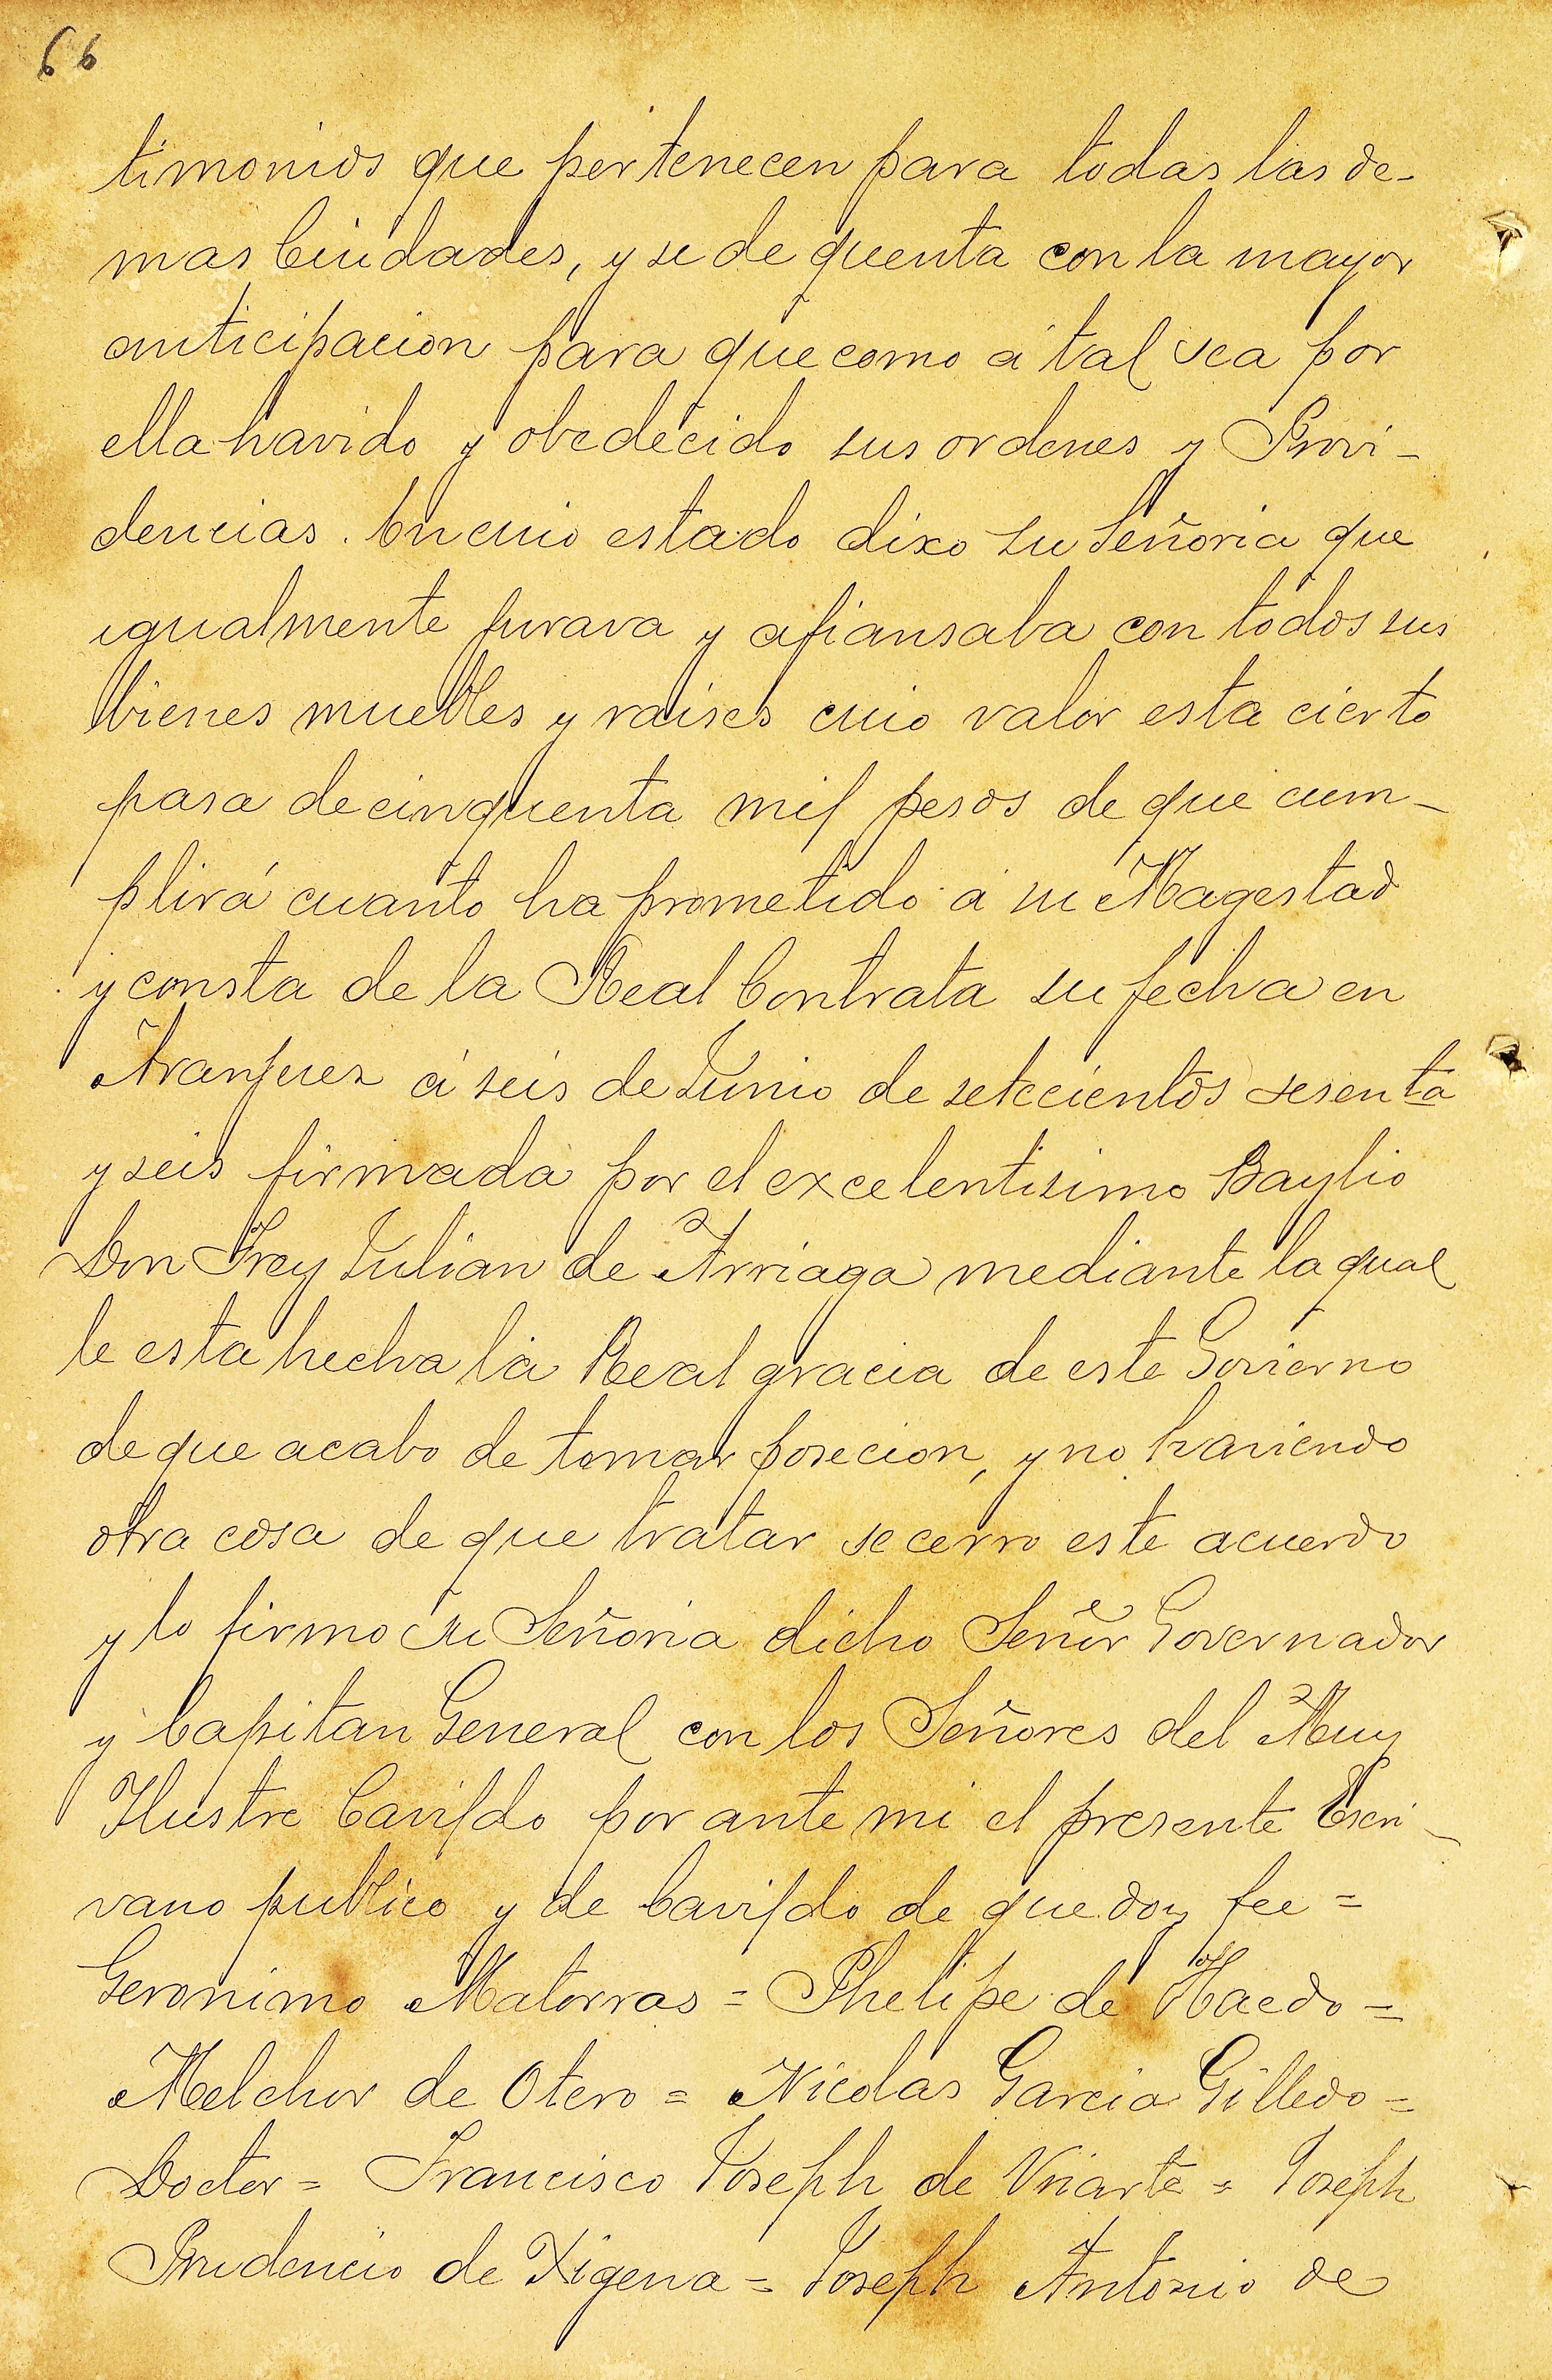 66
timonios que pertenecen para todas las de-
mas Ciudades, y se de quenta con la mayor
anticipacion para que como á tal sea por
ella havido y obedecido sus ordenes y Provi-
dencias. En cuio estado dixo su Señoria que
igualmente jurava y afiansaba con todos sus
bienes muebles y raises cuio valor esta cierto
pasa de cinquenta mil pesos de que cum-
plirá cuanto ha prometido á su Magestad
y consta de la Real Contrata su fecha en
Aranjuez á seis de Junio de setecientos sesenta
y seis firmada por el excelentisimo Baylio
Don Frey Julian de Arriaga mediante la qual
le esta hecha la Real gracia de este Govierno
de que acabo de tomar posecion, y no haviendo
otra cosa de que tratar se cerro este acuerdo
y lo firmo su Señoria dicho Señor Governador
y Capitan General con los Señores del Muy
Ilustre Cavildo por ante mi el presente Escri-
vano publico y de Cavildo de que doy fee =
Geronimo Matorras = Phelipe de Haedo =
Melchor de Otero = Nicolas Garcia Gilledo =
Doctor = Francisco Joseph de Uriarte = Joseph
Prudencio de Xigena = Joseph Antonio de